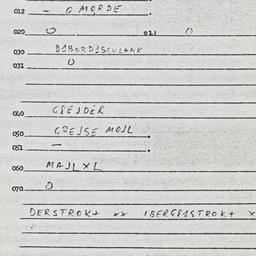 012 - O MORDE .
020 O 021 O
030 DABORDASCULANK
031 O
040 GREJDER
050 GREJSE MOJL .
051 - .
060 MAJLXL
070 O
DERSTROKT xx IBERGRASTROKT x